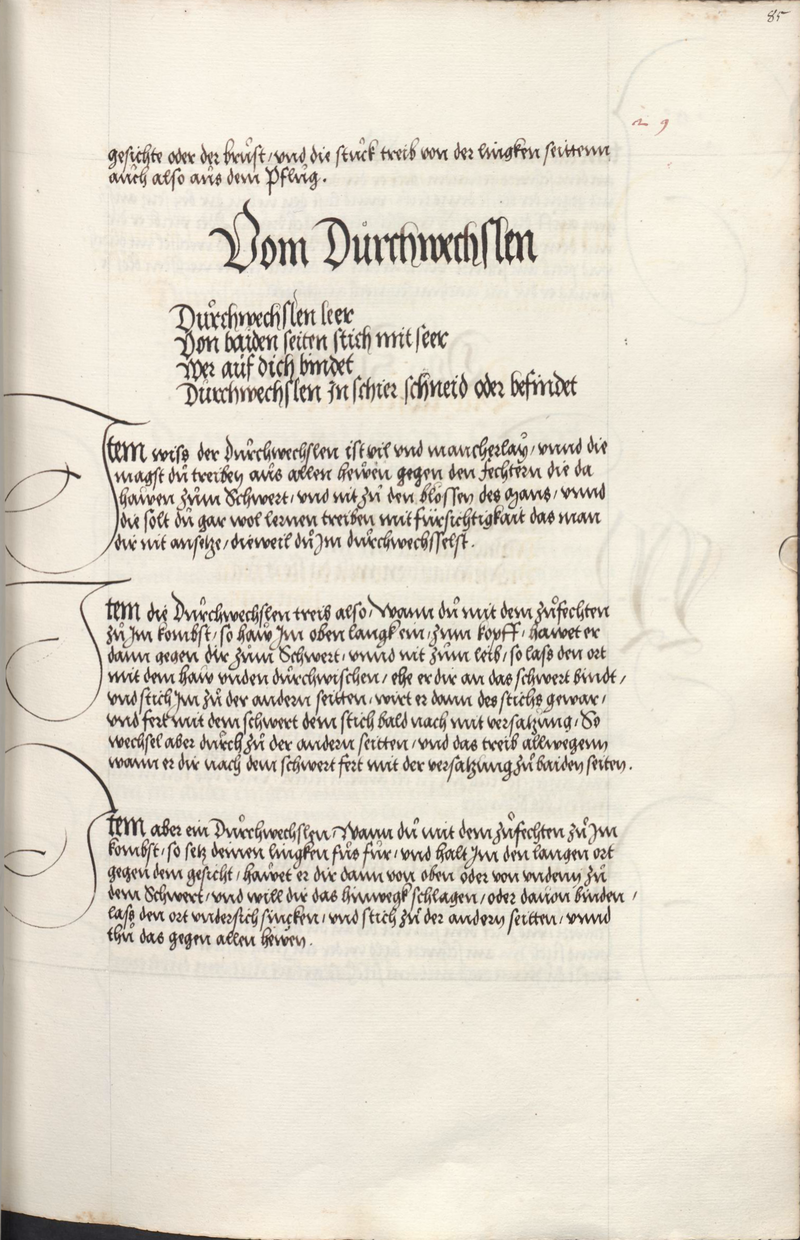 85
29
gesichte oder der brůst / vnd die stuck treib von der lingken seittenn
auch also aus dem Pflůg .
Vom Durchwechslen
Durchwechslen leer
Von baiden seiten stich mit seer
Wer auf dich bindet
Dürchwechslen In schier schneid oder befindet
Item wiss der Dürchwechslen ist vil vnd mancherlay / vnnd die
magst dů treiben aus allen hewen gegen den fechtern die da
hawen zům Schwert / vnd nit zů den blossen des Mans / vnnd
die solt dů gar wol lernen treiben mit fürsichtigkait das man
dir nit ansetze / dieweil dů Im dürchwechsselst .
Item die Dürchwechslen treib also / Wann dů mit dem zůfechten
zů Im kombst / so haw Im oben langk ein / zum kopff / hawet er
dann gegen dir zům Schwert / vnnd nit zům leib / so lass den ort
mit dem haw vnden dürchwischen / ehe er dir an das schwert bindt /
vnd stich Im zů der andern seitten / wirt er dann des stichs gewar /
vnd fert mit dem schwert dem stich bald nach mit versatzung / So
wechsel aber durch zů der andern seitten / vnd das treib allwegenn
wann er dir nach dem schwert fert mit der versatzung zů baiden seiten .
Item aber ein Dürchwechslen / Wann dů mit dem zůfechten zů Im
kombst / so setz deinen lingken fůs für / vnd halt Im den langen ort
gegen dem gesicht / hawet er dir dann von oben oder von vndenn zů
dem Schwert / vnd will dir das hinwegk schlagen / oder dauon binden /
lass den ort vndersich sincken / vnd stich zů der andern seitten / vnnd
thů das gegen allen hewen .